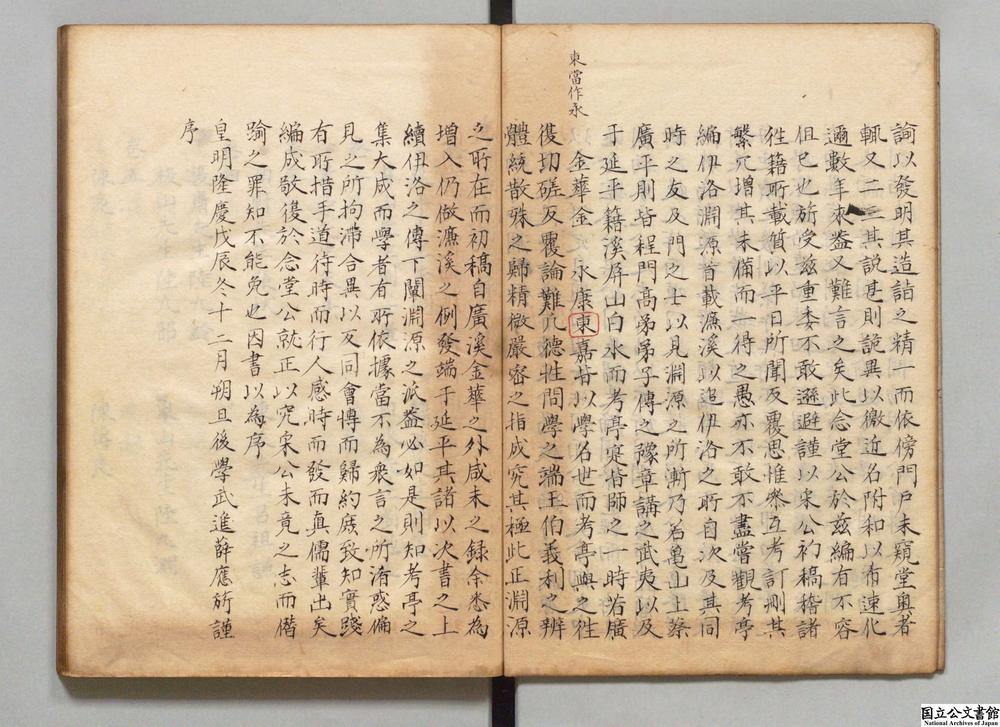 東當作永
諭以發明其造詣之精一而依傍門戶未窺堂奧者
輒又二三其說甚則詭異以徼近名附和以布速化
邇數年來益又難言之矣此念堂公於茲編有不容
但已也旂受茲重委不敢遜避謹以宋公初稿稽諸
徃籍所載質以平日所聞反覆思惟參互考訂刪其
繁冗增其未備而一得之愚亦不敢不盡嘗觀考亭
編伊洛淵源首載濂溪以追伊洛之所自次及其同
時之友及門之士以見淵源之所漸乃若龜山上蔡
廣平則皆程門高弟弟子傳之豫章講之武夷以及
于延平籍溪屏山白水而考亭寔皆師之一時若廣
金華金　永康東嘉皆以學名世而考亭與之徃
復切磋反覆論難凢德性問學之端王伯義利之辨
體統散殊之歸精微嚴密之指咸究其極此正淵源
之所在而初稿自廣溪金華之外咸未之録余悉為
增入仍倣濂溪之例發端于延平其諸以次書之上
續伊洛之傳下闡淵源之派盖必如是則知考亭之
集大成而學者有所依據當不為衆言之所淆惑偏
見之所拘滯合異以反同會博而歸約庻致知實踐
有所措手道待時而行人感時而發而真儒輩出矣
編成敬復於念堂公就正以究宋公未竟之志而僭
踰之罪知不能免也因書以為序
皇明隆慶戊辰冬十二月朔旦後學武進薛應旂謹
序
国立公文書館
National Archives of Japan